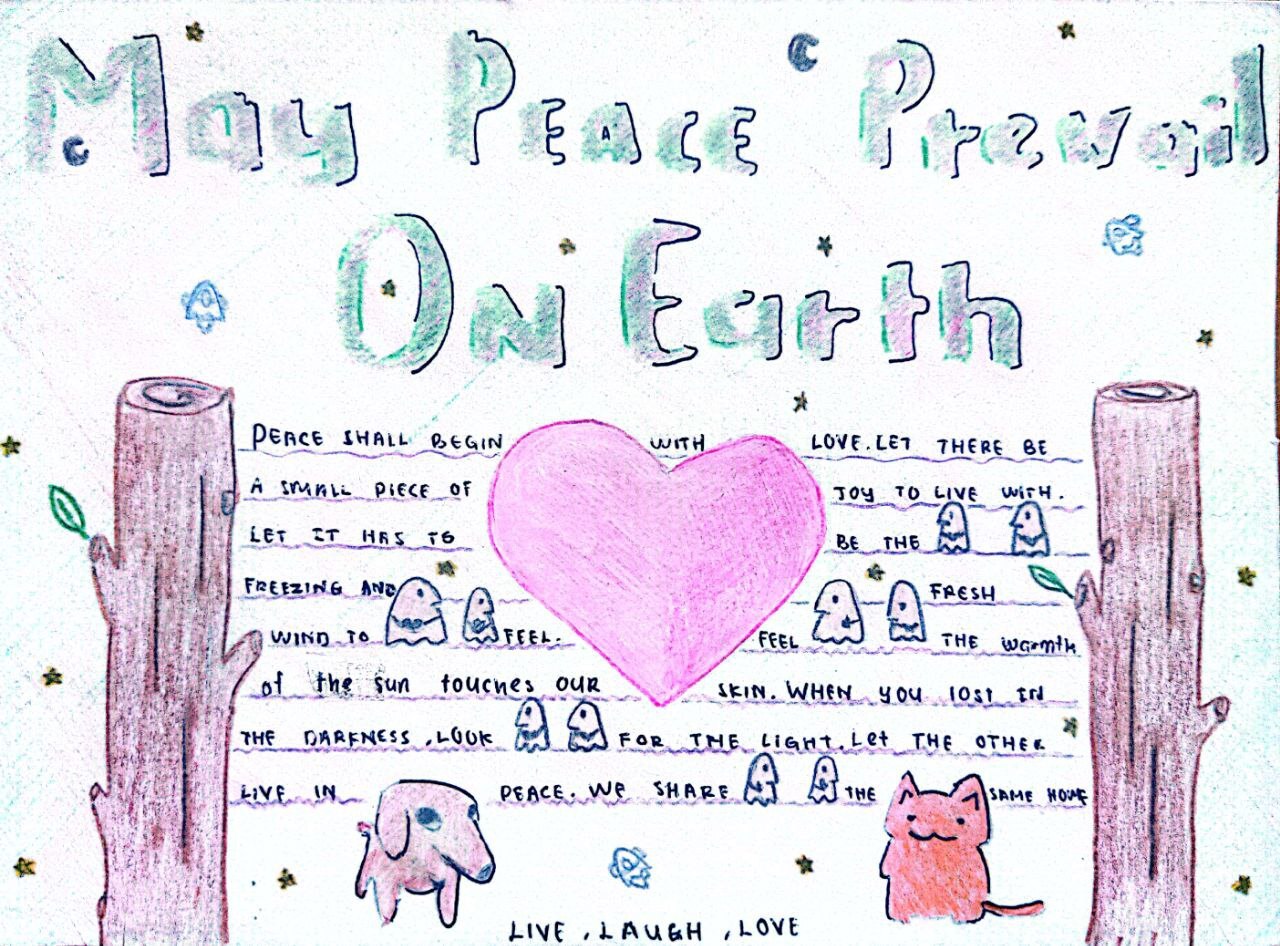 May Peace Prevail
On Earth
PEACE SHALL BEGIN WITH LOVE. LET THERE BE
A SMALL PIECE OF JOY TO LIVE WITH.
LET IT HAS TO BE THE
FREEZING AND FRESH
WIND TO FEEL. FEEL THE warmth
of the sun touches OUR SKIN. WHEN YOU LOST IN
THE DARKNESS, LOOK FOR THE LIGHT. Let THE OTHER
LIVE IN PEACE. WE SHARE THE SAME HOME
LIVE, LAUGH, LOVE